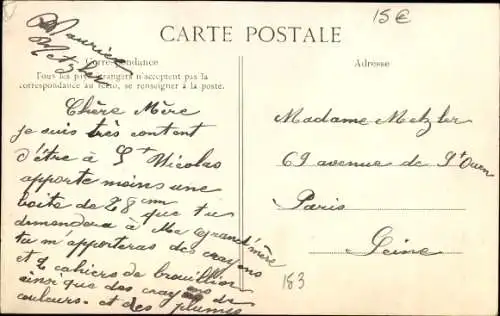 Maurice
Metzler
15€
CARTE POSTALE
Correspondance
Tous les pays étrangers n'acceptent pas la
correspondance au recto, se renseigner à la poste.
Adresse
Chère Mère
je suis très content
d'être à St Nicolas
apporte moins une
boite de 28 cm
que tu
demandera à Me Grand'mère
tu m'apporteras des crayons
et 2 cahiers de brouillion
ainsi que des crayons de
couleurs. et des plumes
Madame Metzler
69 avenue de St Ouen
Paris
Seine
183